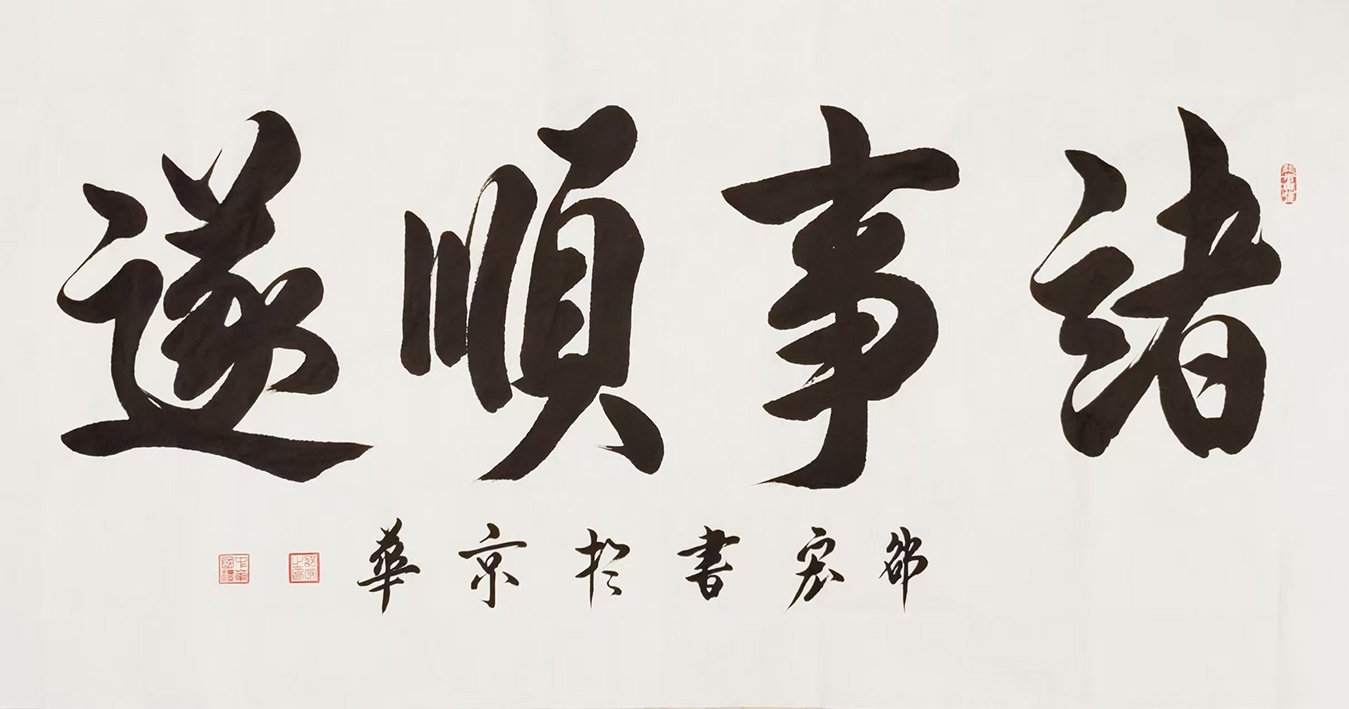 諸事順遂
邵宏書於京華